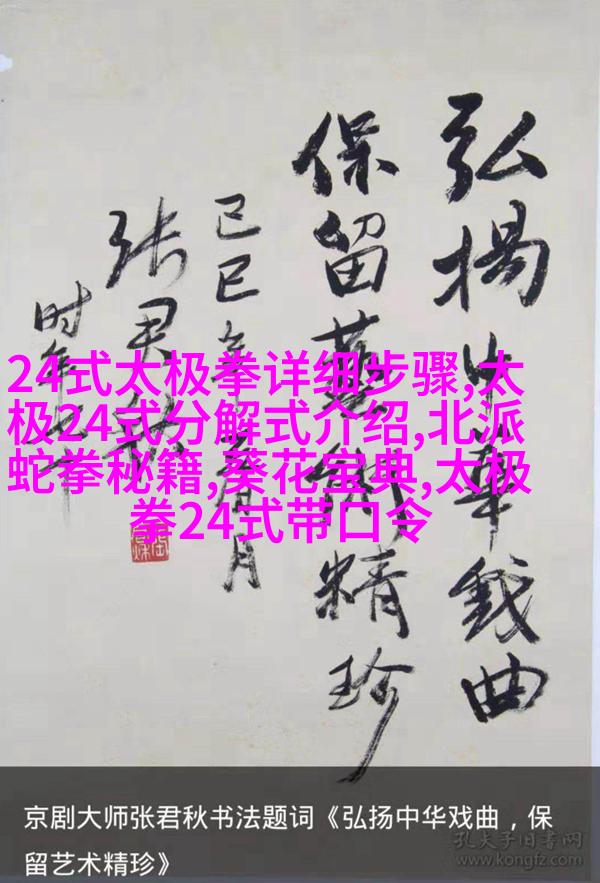 弘揚中華戲曲
保留藝術精珍
己巳年月
张君秋
时年
24式太极拳详细步骤,太
极24式分解式介绍,北派
蛇拳秘籍,葵花宝典,太极
拳24式带口令
京剧大师张君秋书法题词《弘扬中华戏曲，保
留艺术精珍》
孔夫子旧书网
www.kongfz.com